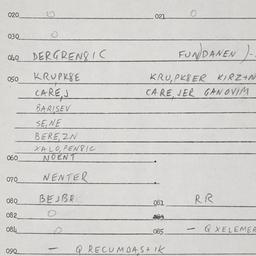 020 O 021 O
030 O
040 DERGRENSIC FUNDANEN
050 KRUPKSE KRU,PKSER KIRZ+N
CARE,J CARE,JER GANOVIM
BARISEV
SE,NE
BERE,ZN
XALO,PENSIC
060 NOENT
070 NENTER
080 BEJBE 081 RR
082 O
084 O 085 — QXELEMER
090 — QRECUMDAS+IK